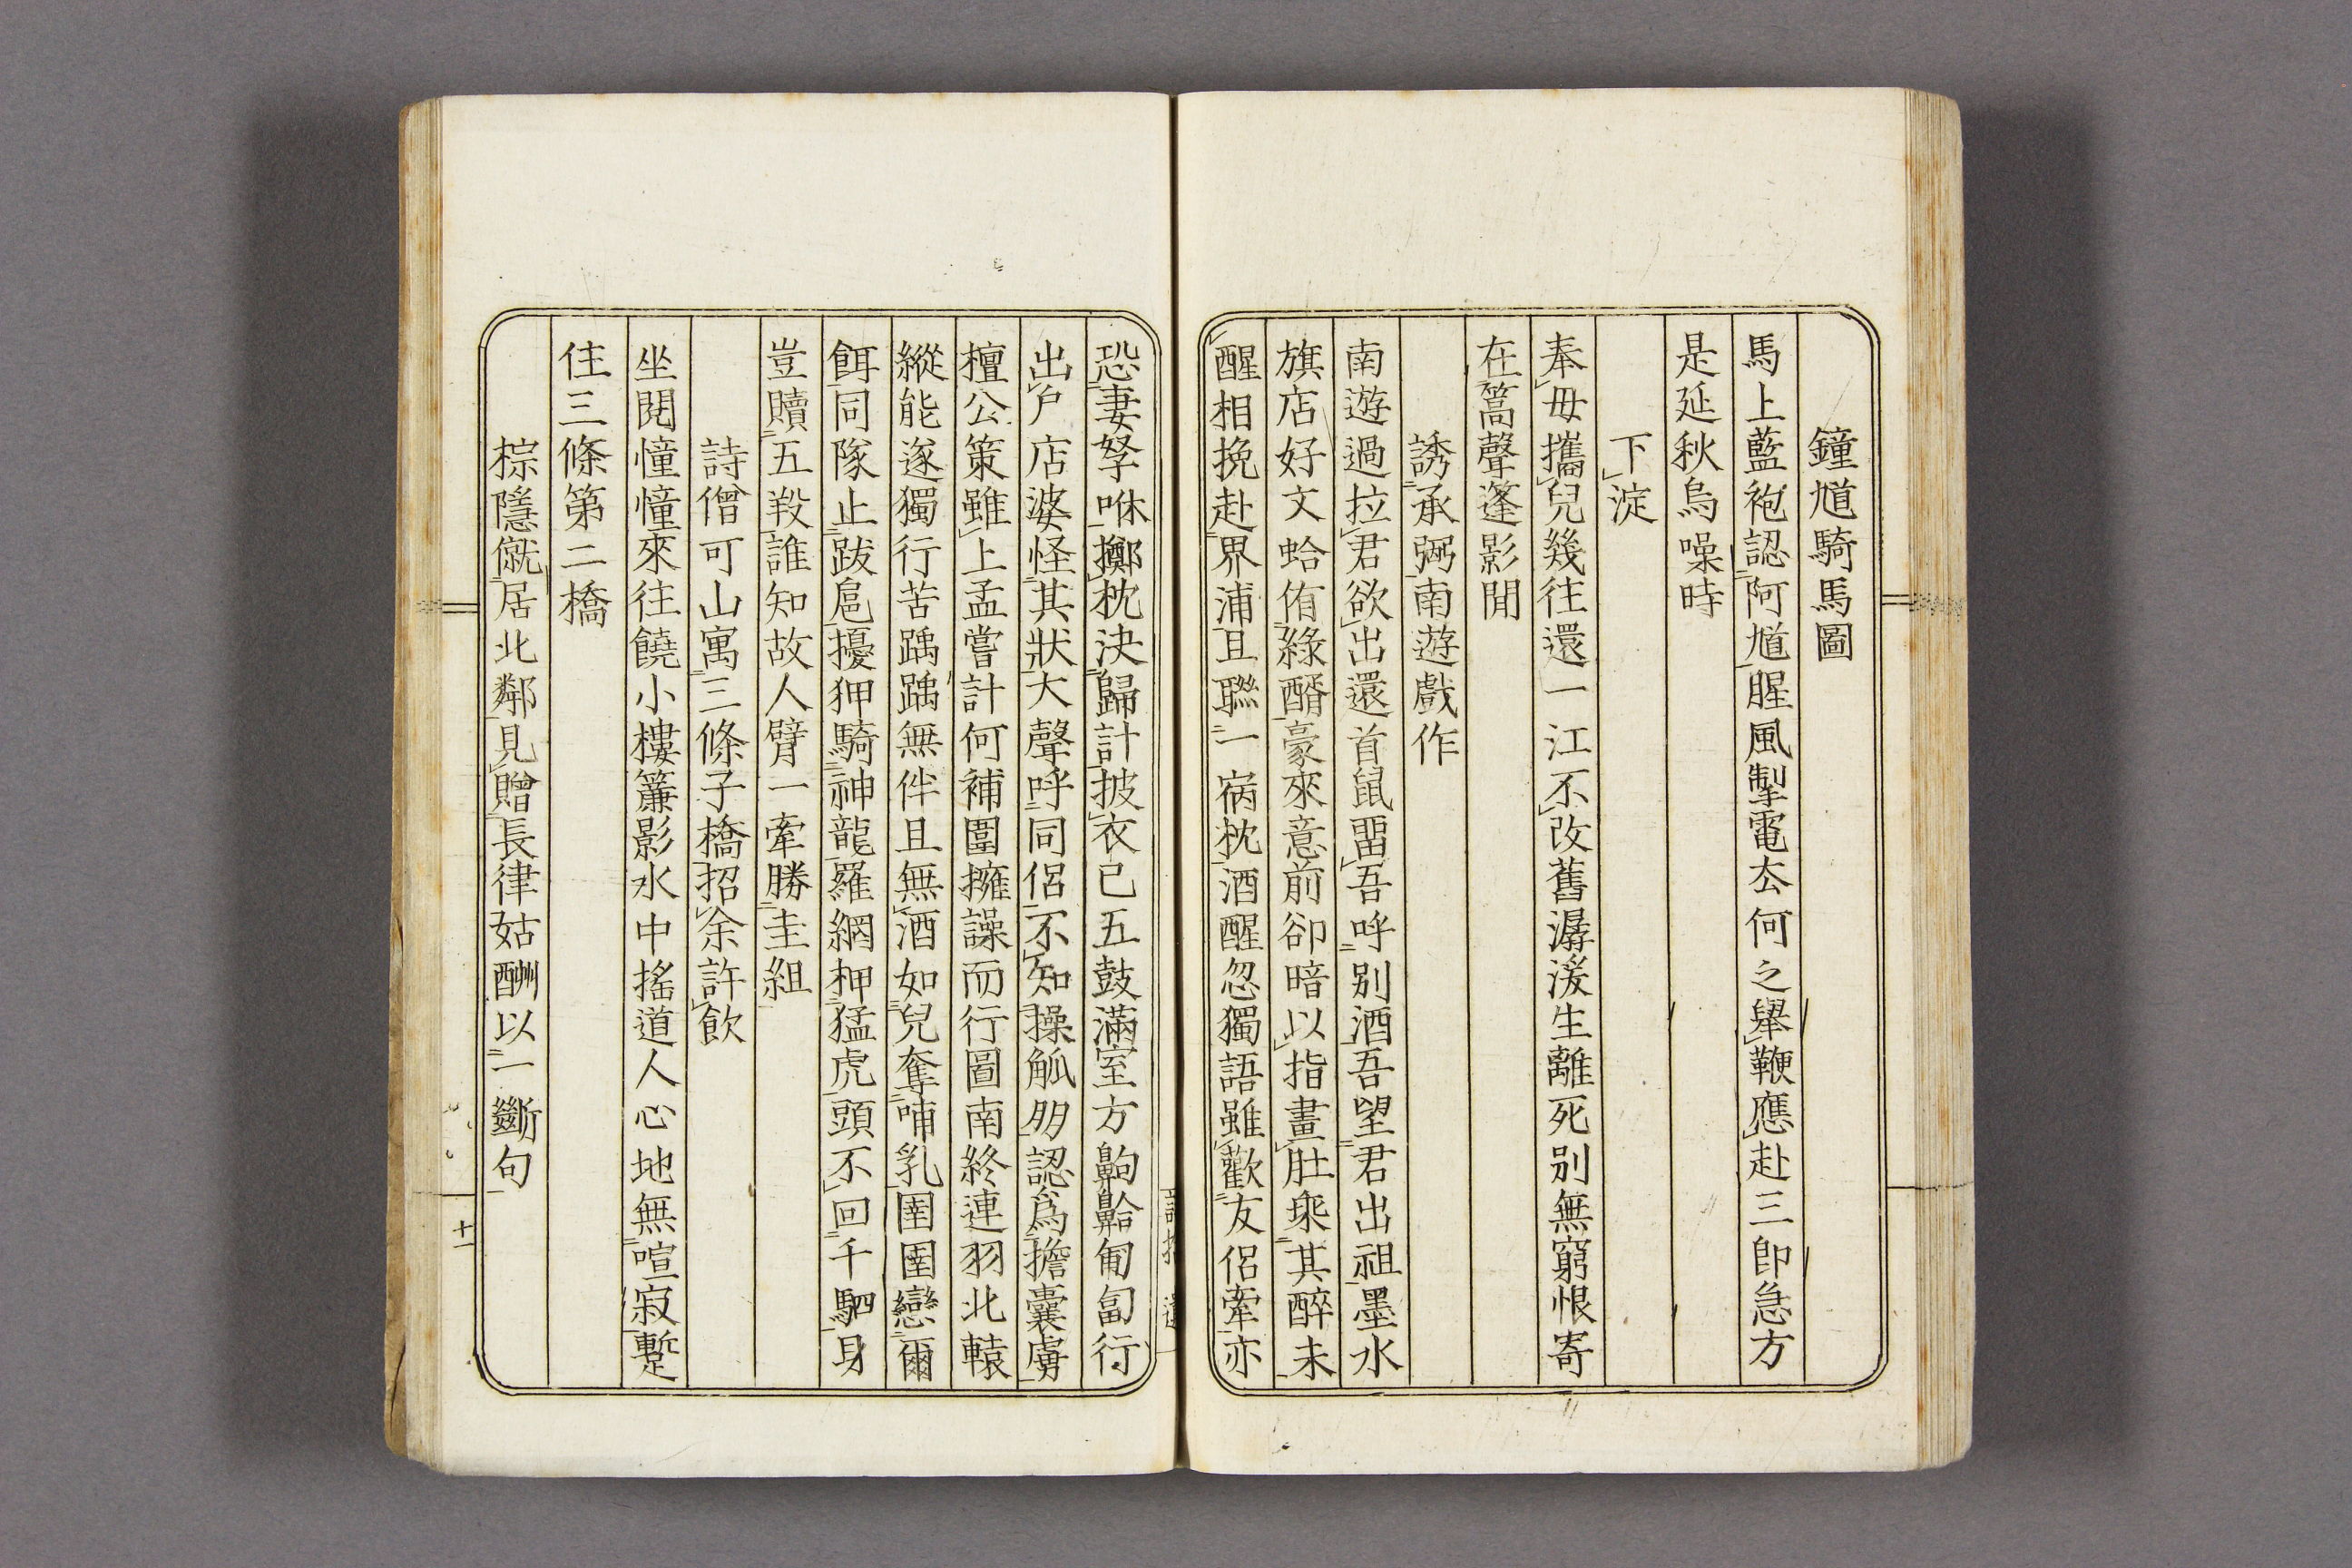 鐘馗騎馬圖
馬上藍袍認阿馗腥風掣電去何之舉鞭應赴三郎急方
是延秋烏噪時
下淀
奉母攜兒幾往還一江不改舊潺湲生離死別無窮恨寄
在篙聲蓬影閒
誘承弼南遊戲作
南遊過拉君欲出還首鼠畱吾呼別酒吾望君出祖墨水
旗店好文蛤侑綠醑豪來意前卻暗以指畫肚乘其醉未
醒相挽赴界浦且聯一病枕酒醒忽獨語雖歡友侶牽亦
恐妻孥咻擲枕決歸計披衣已五鼓滿室方齁鼾匍匐行
出戶店婆怪其狀大聲呼同侶不知操觚朋認爲擔囊虜
檀公策雖上孟嘗計何補圍擁譟而行圖南終連羽北轅
縱能遂獨行苦踽踽無伴且無酒如兒奪哺乳圉圉戀爾
餌同隊止跋扈擾狎騎神龍羅網柙猛虎頭不回千駟身
豈贖五羖誰知故人臂一牽勝圭組
詩僧可山寓三條子橋招余許飲
坐閱憧憧來往饒小樓簾影水中搖道人心地無喧寂蹔
住三條第二橋
棕隱僦居北鄰見贈長律姑酬以一斷句
十一